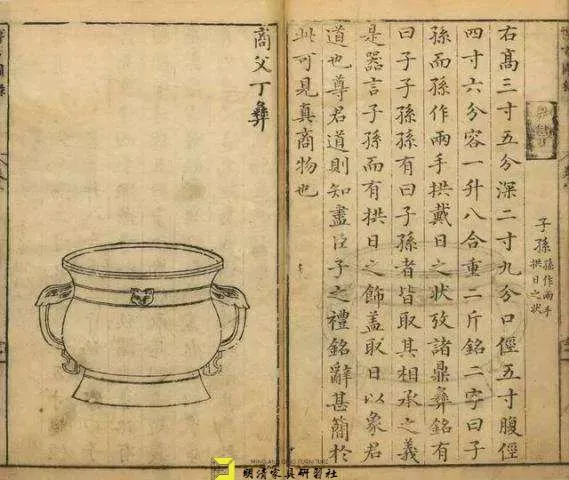 子孫 孫作兩手
拱日之狀
右髙三寸五分深二寸九分口徑五寸腹徑
四寸六分容一升八合重二斤銘二字曰子
孫而孫作兩手拱戴日之狀攷諸鼎彝銘有
曰子子孫孫有曰子孫者皆取其相承之義
是器言子孫而有拱日之飾蓋取日以象君
道也尊君道則知盡臣子之禮銘辭甚簡於
此可見真商物也
商父丁彝
MING AND QING FURNITURE
明清家具研習社